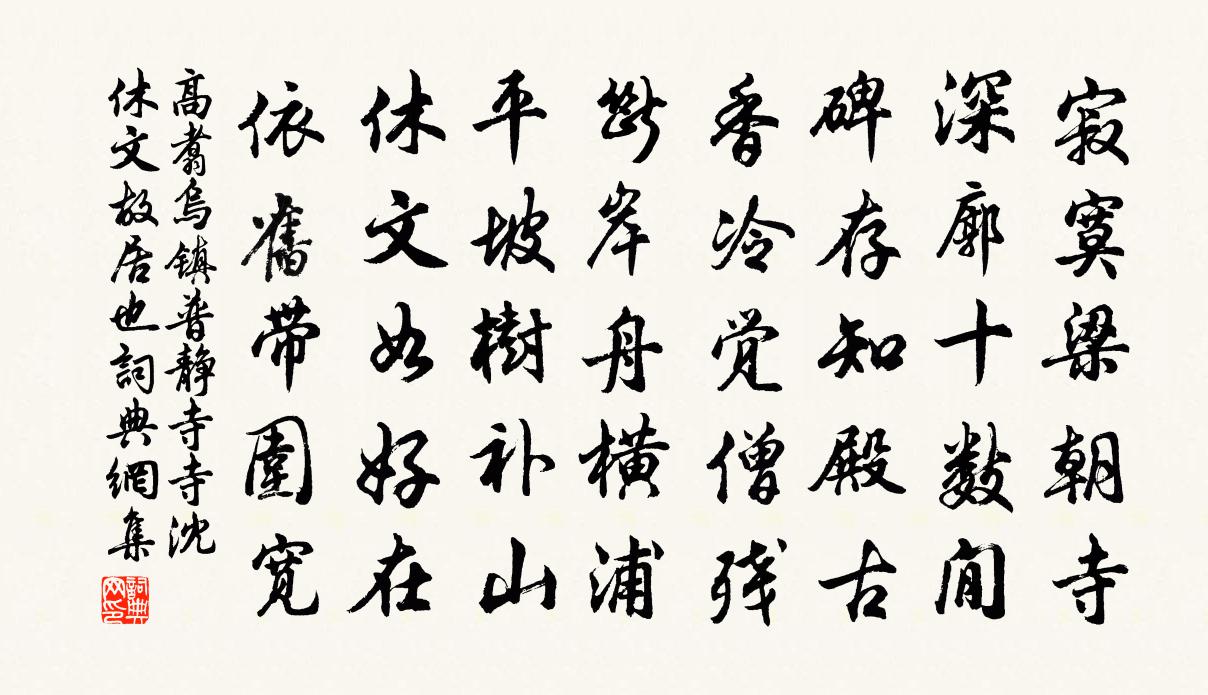 寂寞梁朝寺
深廓十数间
碑存知殿古
香冷觉僧残
断岸舟横浦
平坡树补山
休文如好在
依舊带围宽
高翥烏镇普静寺寺沈
休文故居也詞典網集
詞典
网印